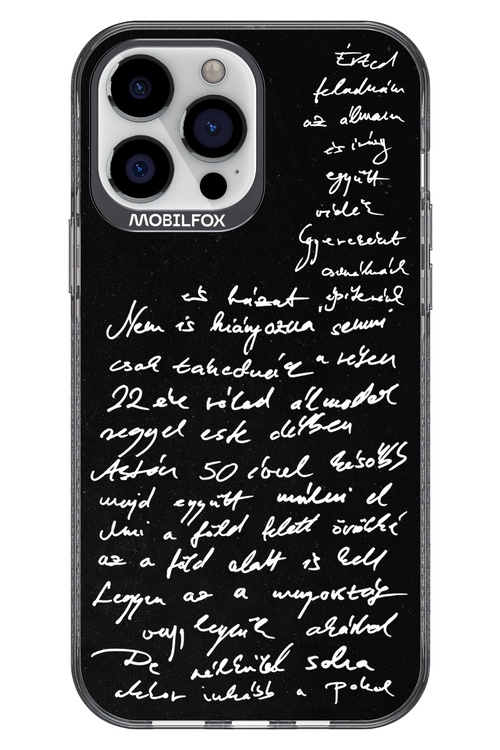 MOBILFOX
Érted
feladnám
az álmom
és így
együtt
vidék
Gyerekeink
csinálnánk
és házat építenénk
Nem is hiányozna semmi
csak takednék a réten
22 éve rólad álmodok
reggel este délben
Aztán 50 évvel később
majd együtt múlni el
Ami a föld felett örökké
az a föld alatt is kell
Legyen az a mennyország
vagy legyünk akárhol
De nélküled soha
akkor inkább a pokol